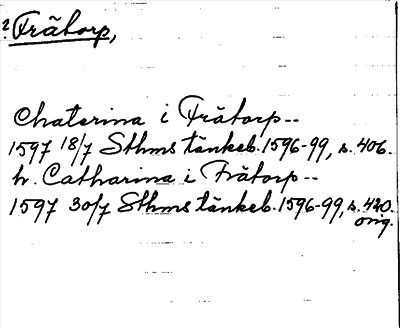 ? Fråtorp,
Chaterina i Fråtorp--
1597 18/7 Sthms tänkeb. 1596-99, s. 406.
h. Catharina i Fråtorp--
1597 30/7 Sthms tänkeb. 1596-99, s. 420.
orig.